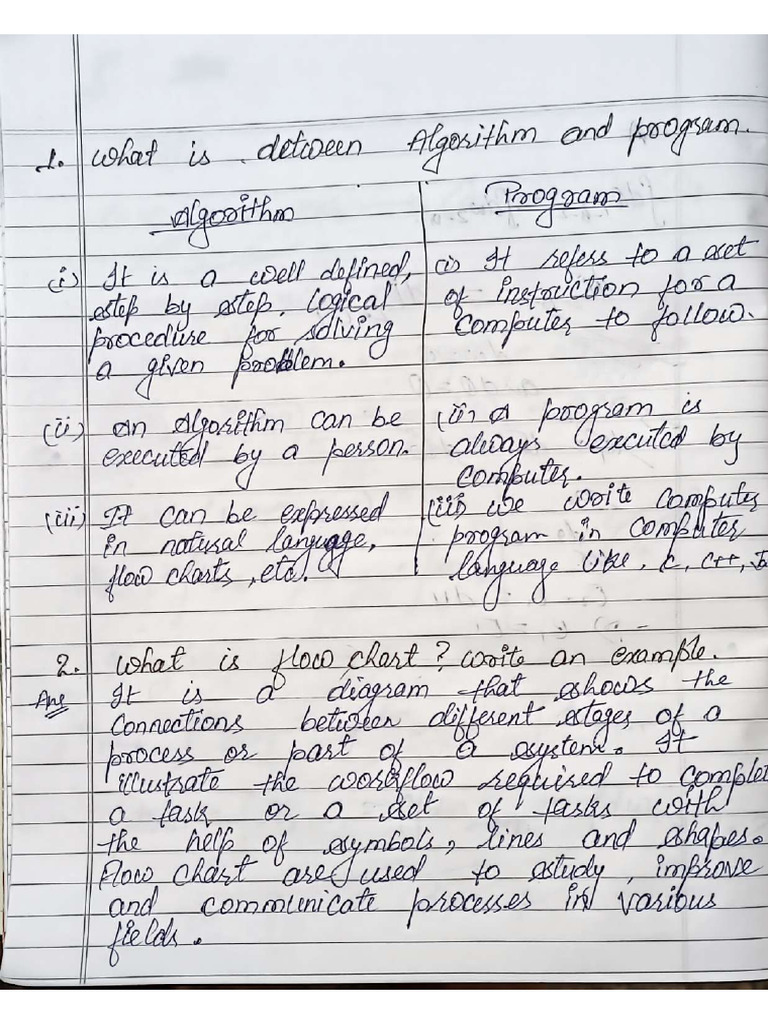 1. What is detween Algorithm and program.
Algorithm
(i) It is a well defined,
step by step, logical
procedure for solving
a given problem.
(ii) An Algorithm can be
executed by a person.
(iii) It can be expressed
in natural language,
flow charts, etc.
Program
(i) It refers to a set
of instruction for a
computer to follow.
(ii) A program is
always executed by
computer.
(iii) we write computer
program in computer
language like, C, C++,
2. What is flow chart? Write an example.
Ans It is a diagram that shows the
connections between different stages of a
process or part of a system. It
illustrate the workflow required to complet
a task or a set of tasks with
the help of symbols, lines and shapes.
Flow chart are used to study, improve
and communicate processes in various
fields.